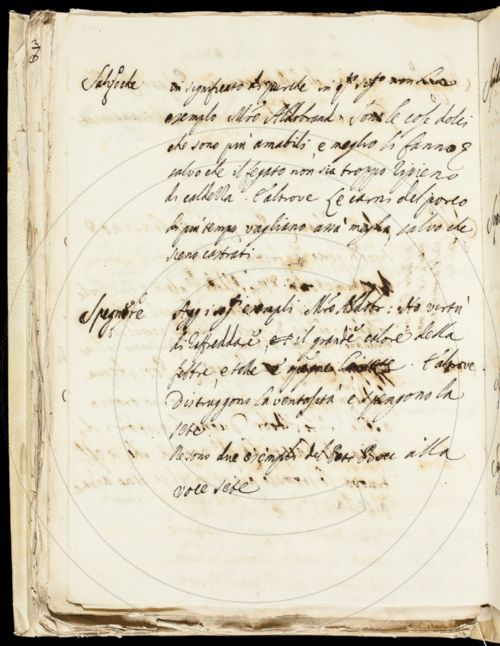 Salvo che in significato di purche in q.to sig.to non ha
exemplo M.ro Aldobrand. Son le cose dolci
che sono più amabili e meglio li fanno
salvo che il fegato non sia troppo ripieno
di caldezza. E altrove Le carni del porco
di più tempo vagliano assai meglio salvo che
sieno castrati
Spegnere Agg. i seg. exempli M.ro Aldobr: Ha vertù
di rafreddare et il grande calore della
febre e tolle E altrove
Distruggono la ventosità e spengono la
sete
Ne sono due exempli del alla
voce sete